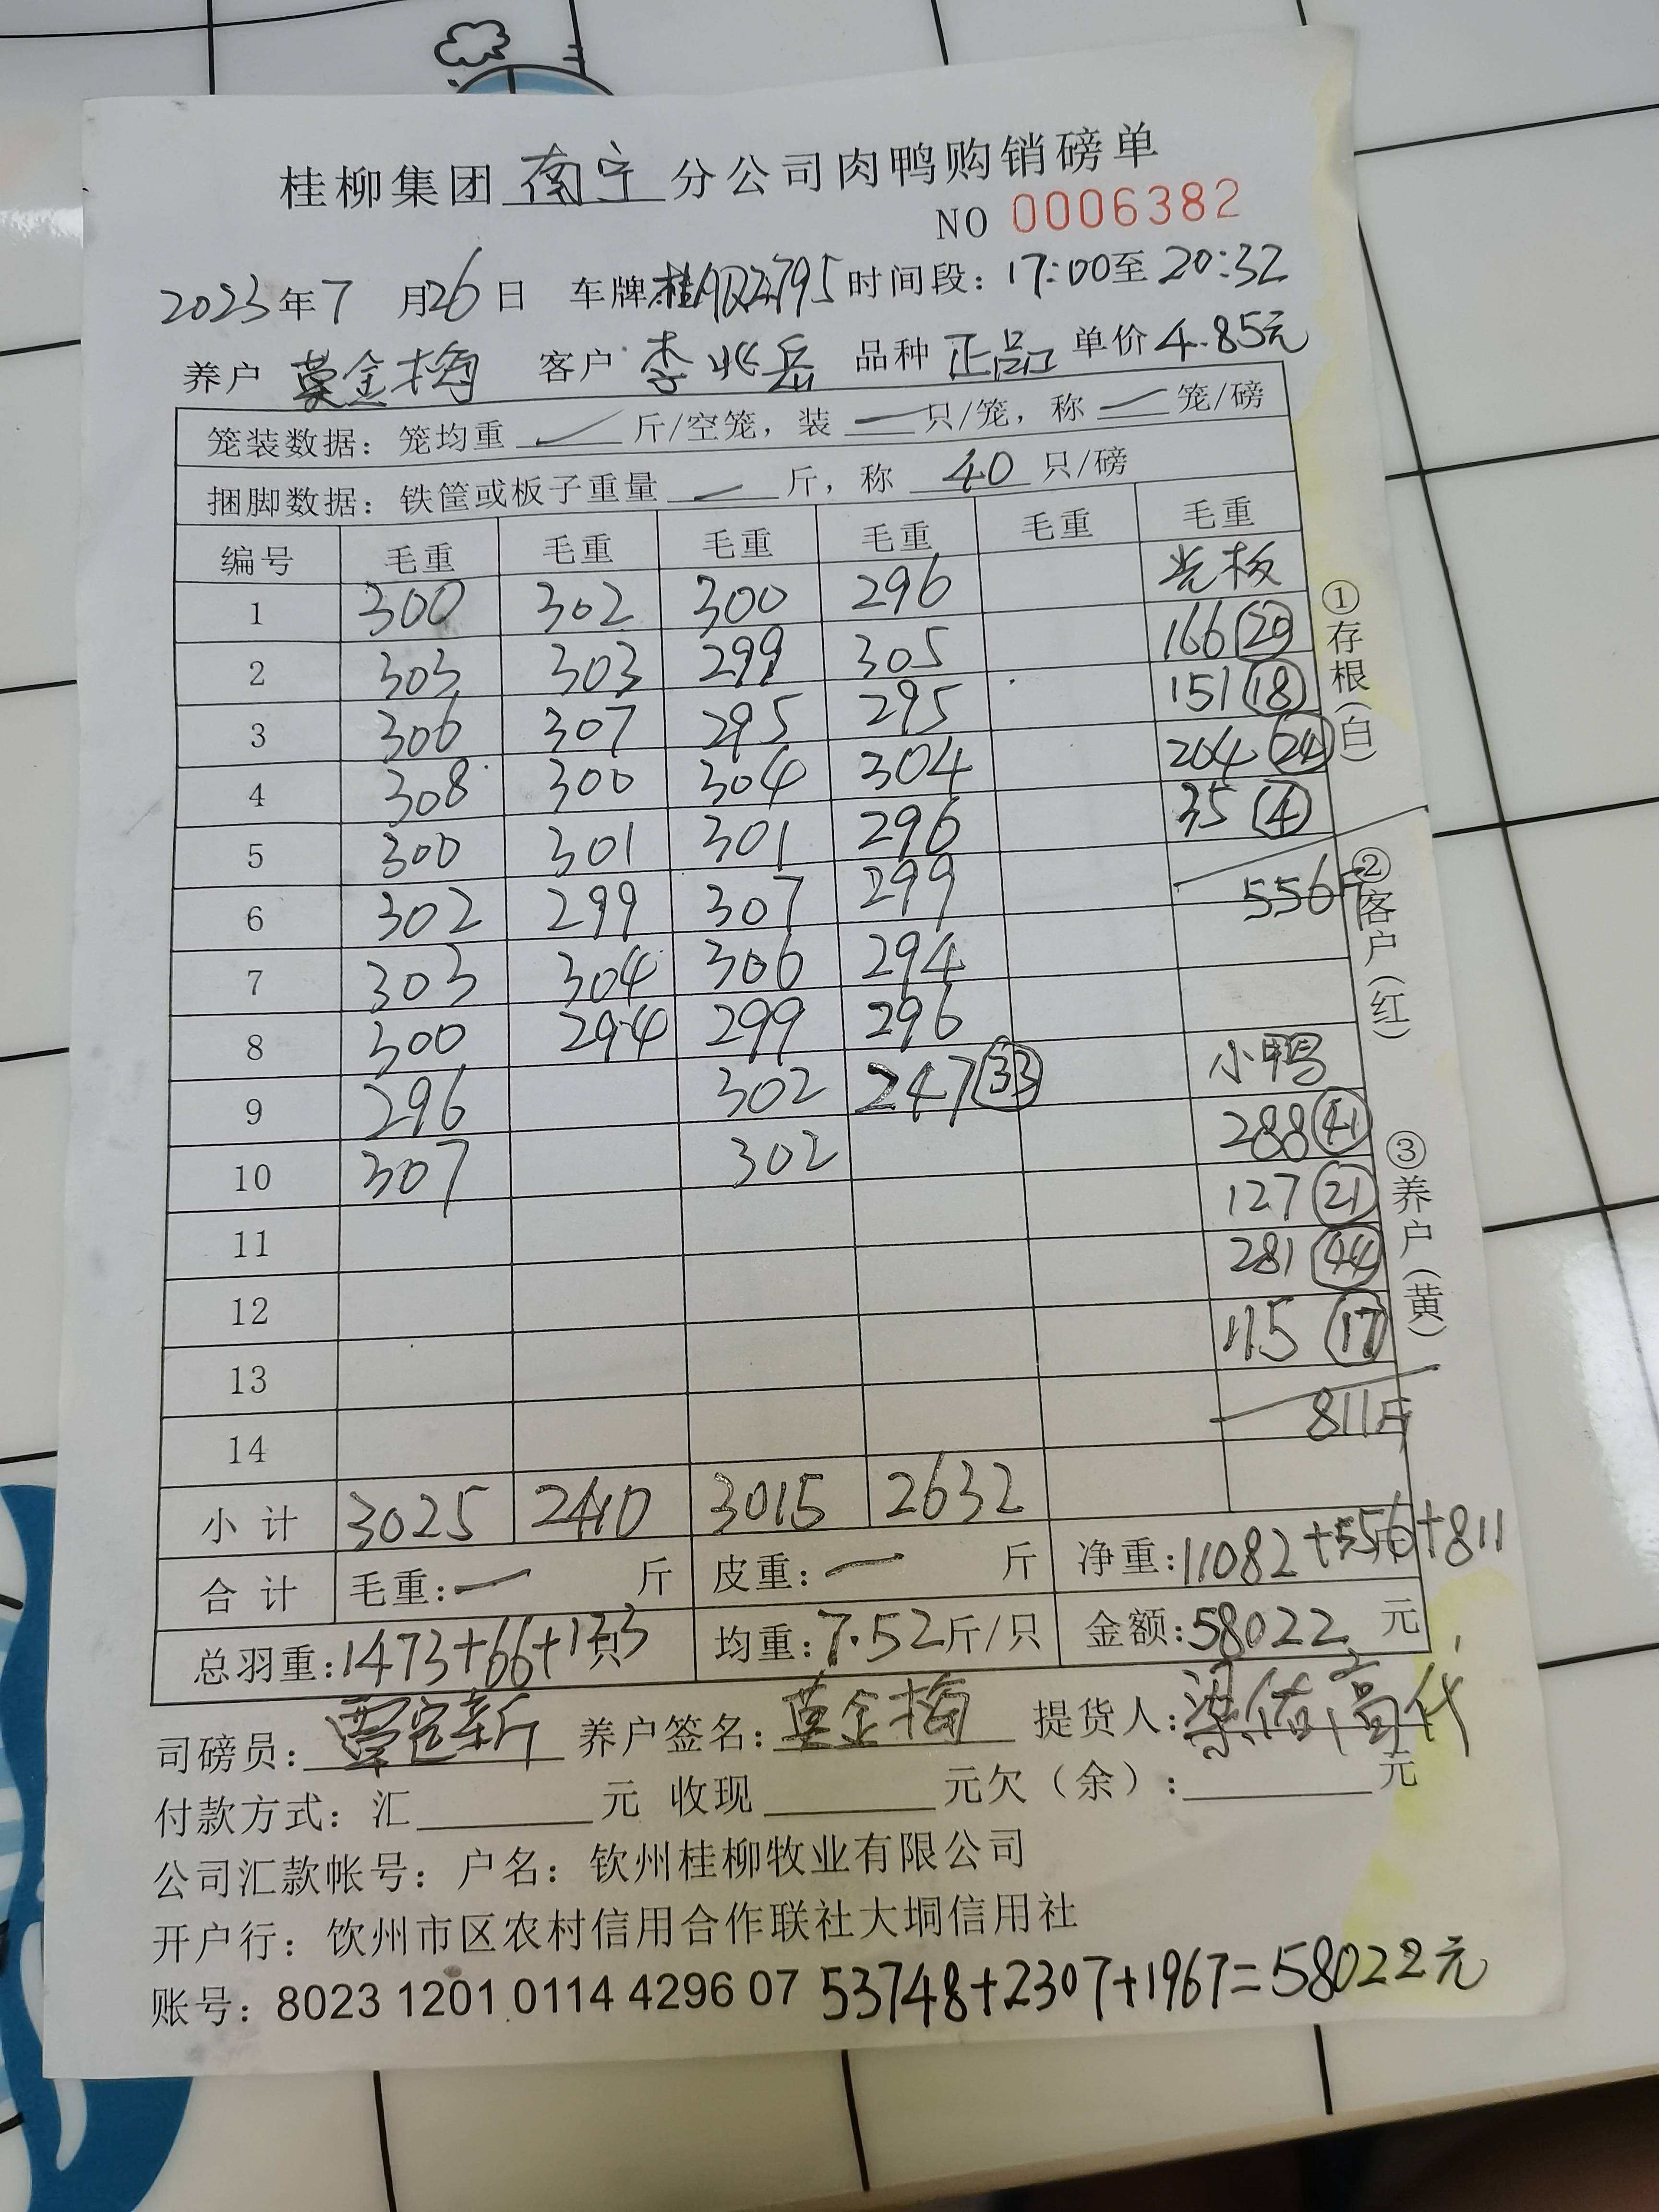 桂柳集团 南宁 分公司肉鸭购销磅单
NO 0006382
2023年7月26日 车牌 时间段：17:00至20:32
养户 莫金梅 客户 李兆岳 品种 正品 单价 4.85元
笼装数据：笼均重 斤/空笼，装 一 只/笼，称 一 笼/磅
捆脚数据：铁筐或板子重量 一 斤，称 40 只/磅
编号 毛重 毛重 毛重 毛重 毛重 毛重
1 300 302 300 296 光板
2 303 303 299 305 166 ⑳
3 306 307 295 295 151 ⑱
4 308 300 304 304 204 ㉔
5 300 301 301 296 35 ④
6 302 299 307 299 556斤
7 303 304 306 294
8 300 294 299 296 小鸭
9 296 302 247 ㉝ 288 ㊶
10 307 302 127 ㉑
11 281 ㊹
12 115 ⑰
13 811斤
14
小计 3025 2410 3015 2632
合计 毛重：一 斤 皮重：一 斤 净重：11082+556+811
总羽重：1473+66+123只 均重：7.52斤/只 金额：58022元
司磅员： 养户签名：莫金梅 提货人：
付款方式：汇 元 收现 元欠（余）： 元
公司汇款帐号：户名：钦州桂柳牧业有限公司
开户行：钦州市区农村信用合作联社大垌信用社
账号：8023 1201 0114 4296 07 53748+2307+1967=58022元
①存根（白）
②客户（红）
③养户（黄）